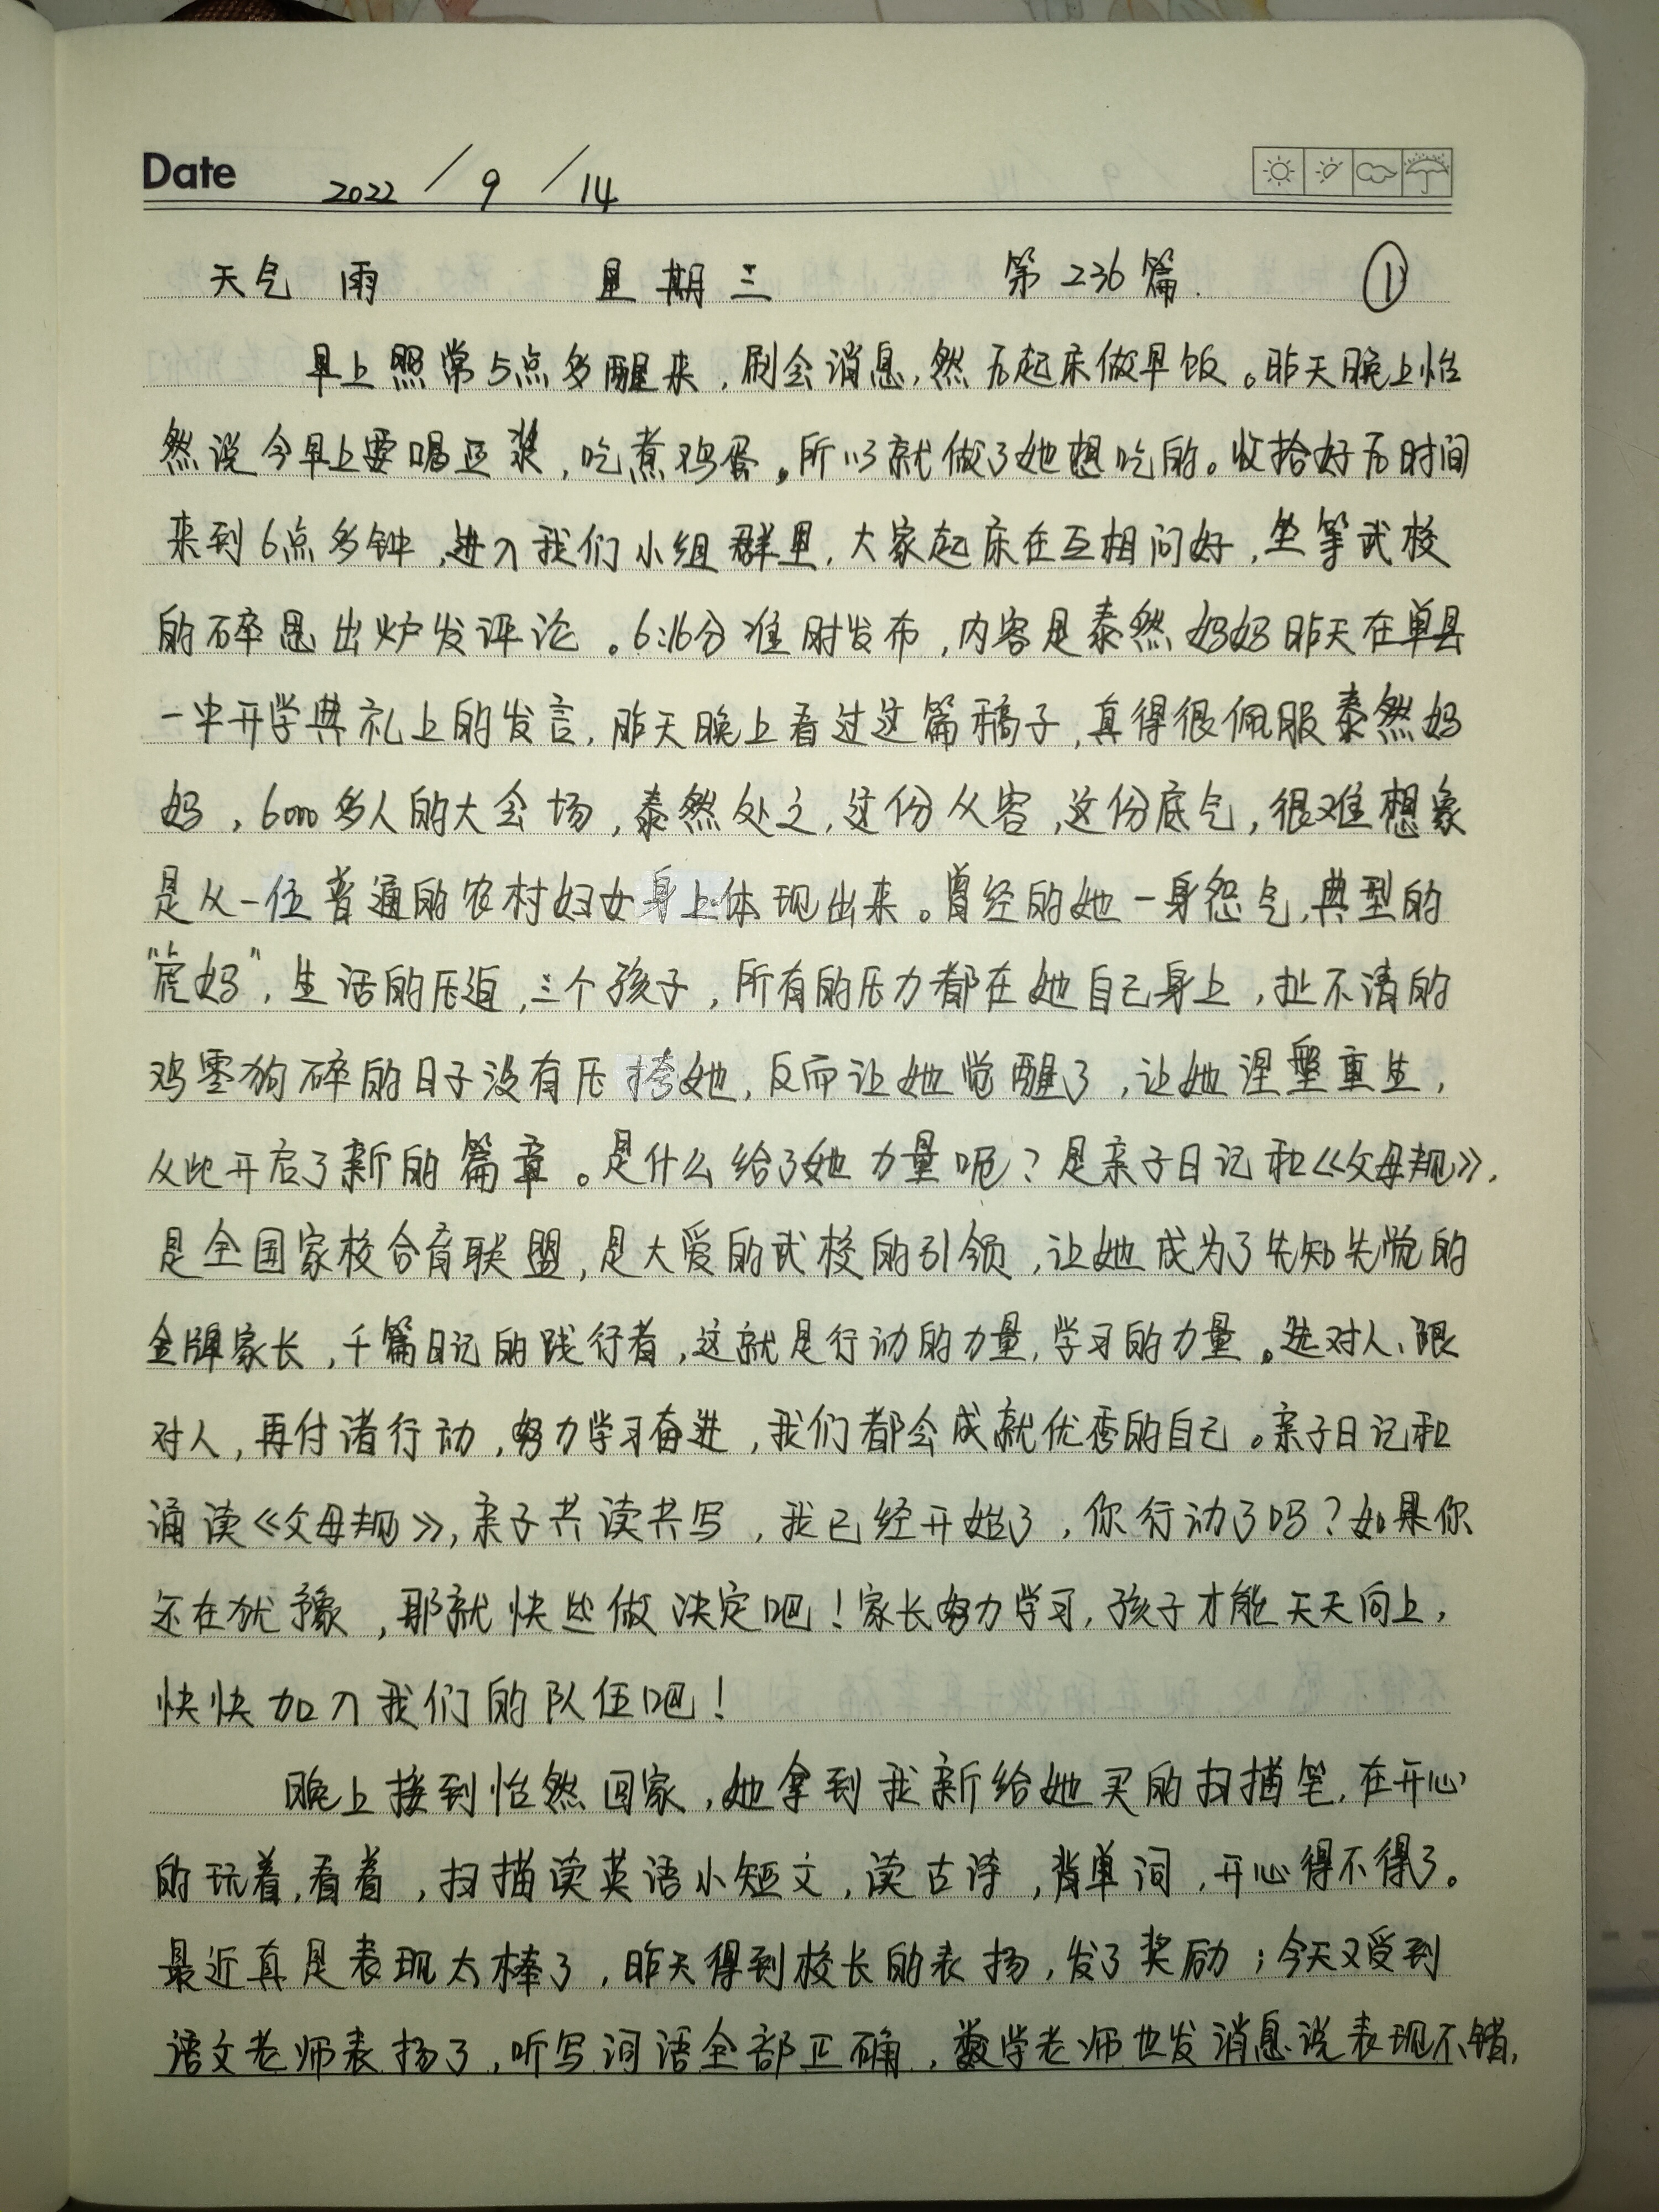 Date 2022 / 9 / 14
天气 雨 星期三 第236篇. ①
早上照常5点多醒来,刷会消息,然后起床做早饭。昨天晚上怡
然说今早上要喝豆浆,吃煮鸡蛋。所以就做了她想吃的。收拾好后时间
来到6点多钟,进入我们小组群里,大家起床在互相问好,坐等武校
的碎思出炉发评论。6:16分准时发布,内容是泰然妈妈昨天在单县
一中开学典礼上的发言,昨天晚上看过这篇稿子,真得很佩服泰然妈
妈,6000多人的大会场,泰然处之,这份从容,这份底气,很难想象
是从一位普通的农村妇女身上体现出来。曾经的她一身怨气,典型的
“虎妈”,生活的压迫,三个孩子,所有的压力都在她自己身上,扯不清的
鸡零狗碎的日子没有压挎她,反而让她觉醒了,让她涅槃重生,
从此开启了新的篇章。是什么给了她力量呢?是亲子日记和《父母规》,
是全国家校合育联盟,是大爱的武校的引领,让她成为了先知先觉的
金牌家长,千篇日记的践行者,这就是行动的力量,学习的力量。选对人、跟
对人,再付诸行动,努力学习奋进,我们都会成就优秀的自己。亲子日记和
诵读《父母规》,亲子共读共写,我已经开始了,你行动了吗?如果你
还在犹豫,那就快些做决定吧!家长努力学习,孩子才能天天向上,
快快加入我们的队伍吧!
晚上接到怡然回家,她拿到我新给她买的扫描笔,在开心
的玩着,看着,扫描读英语小短文,读古诗,背单词,开心得不得了。
最近真是表现太棒了,昨天得到校长的表扬,发了奖励;今天又受到
语文老师表扬了,听写词语全部正确,数学老师也发消息说表现不错,